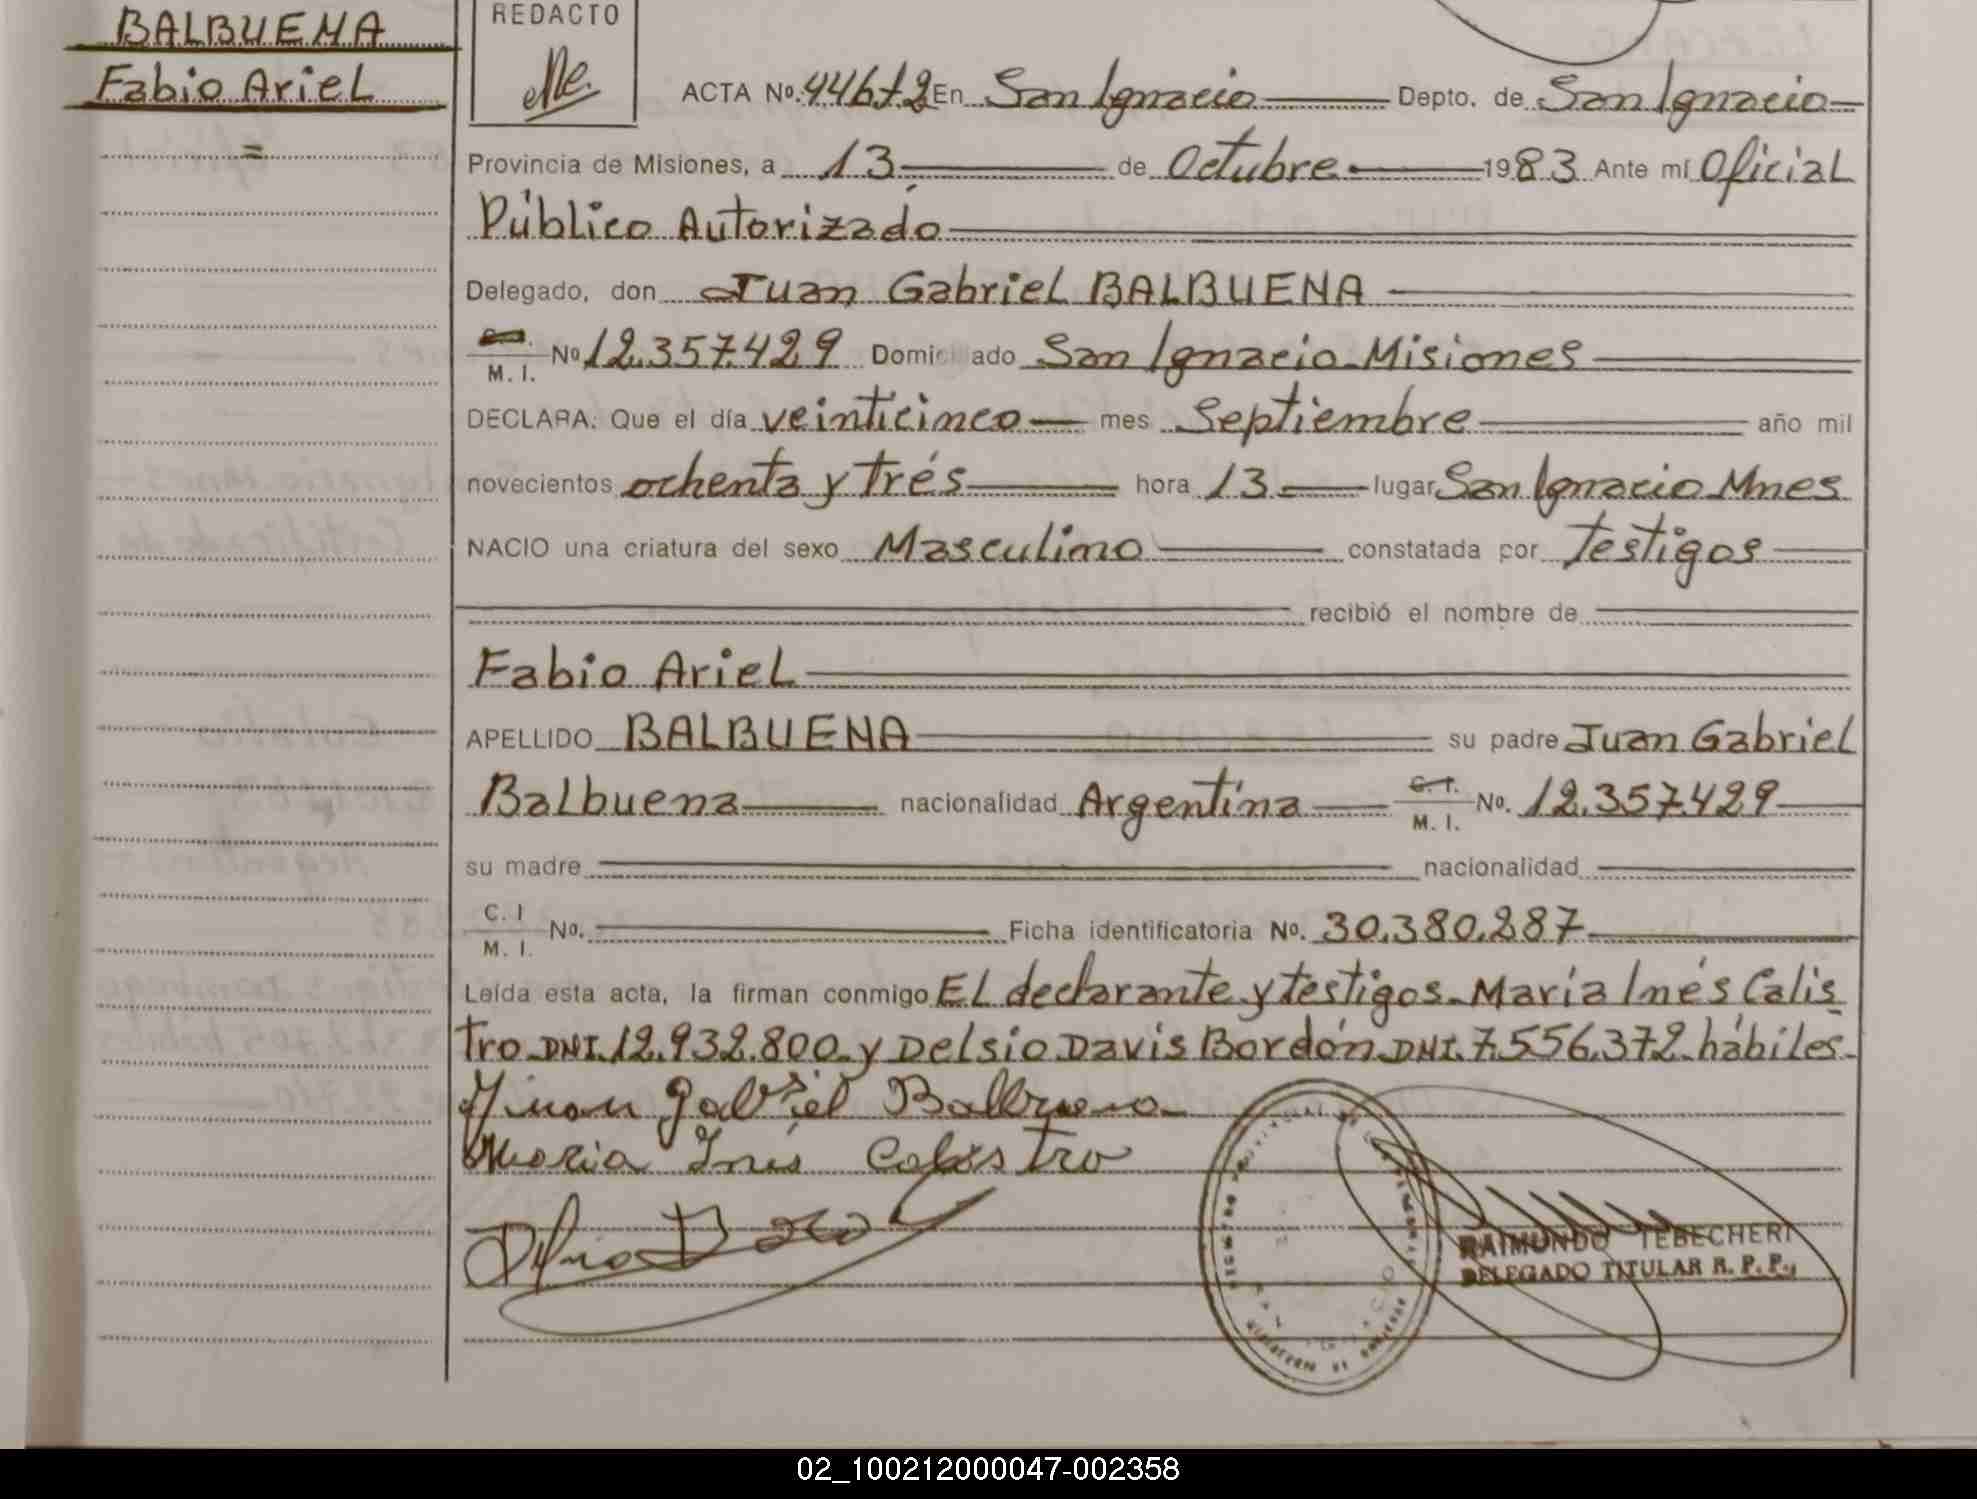 BALBUENA
Fabio Ariel
=
REDACTO
ACTA Nº. 446 t2 En San Ignacio Depto. de San Ignacio
Provincia de Misiones, a 13 de Octubre 1983 Ante mí Oficial
Público Autorizado
Delegado, don Juan Gabriel BALBUENA
M. I. Nº 12.357.429 Domiciliado San Ignacio Misiones
DECLARA: Que el día veinticinco mes Septiembre año mil
novecientos ochenta y trés hora 13 lugar San Ignacio Mnes
NACIO una criatura del sexo Masculino constatada por Testigos
recibió el nombre de
Fabio Ariel
APELLIDO BALBUENA su padre Juan Gabriel
Balbuena nacionalidad Argentina C. I. M. I. No. 12.357.429
su madre nacionalidad
C. I M. I. Nº. Ficha identificatoria Nº. 30.380.287
Leída esta acta, la firman conmigo El declarante y testigos María Inés Calis
tro DNI. 12.932.800 y Delsio Davis Bordón DNI. 7.556.372 hábiles.
Juan Gabriel Balbuena
Maria Inés Calistro
RAIMUNDO TEBECHERI
DELEGADO TITULAR R. P. P.
02_100212000047-002358